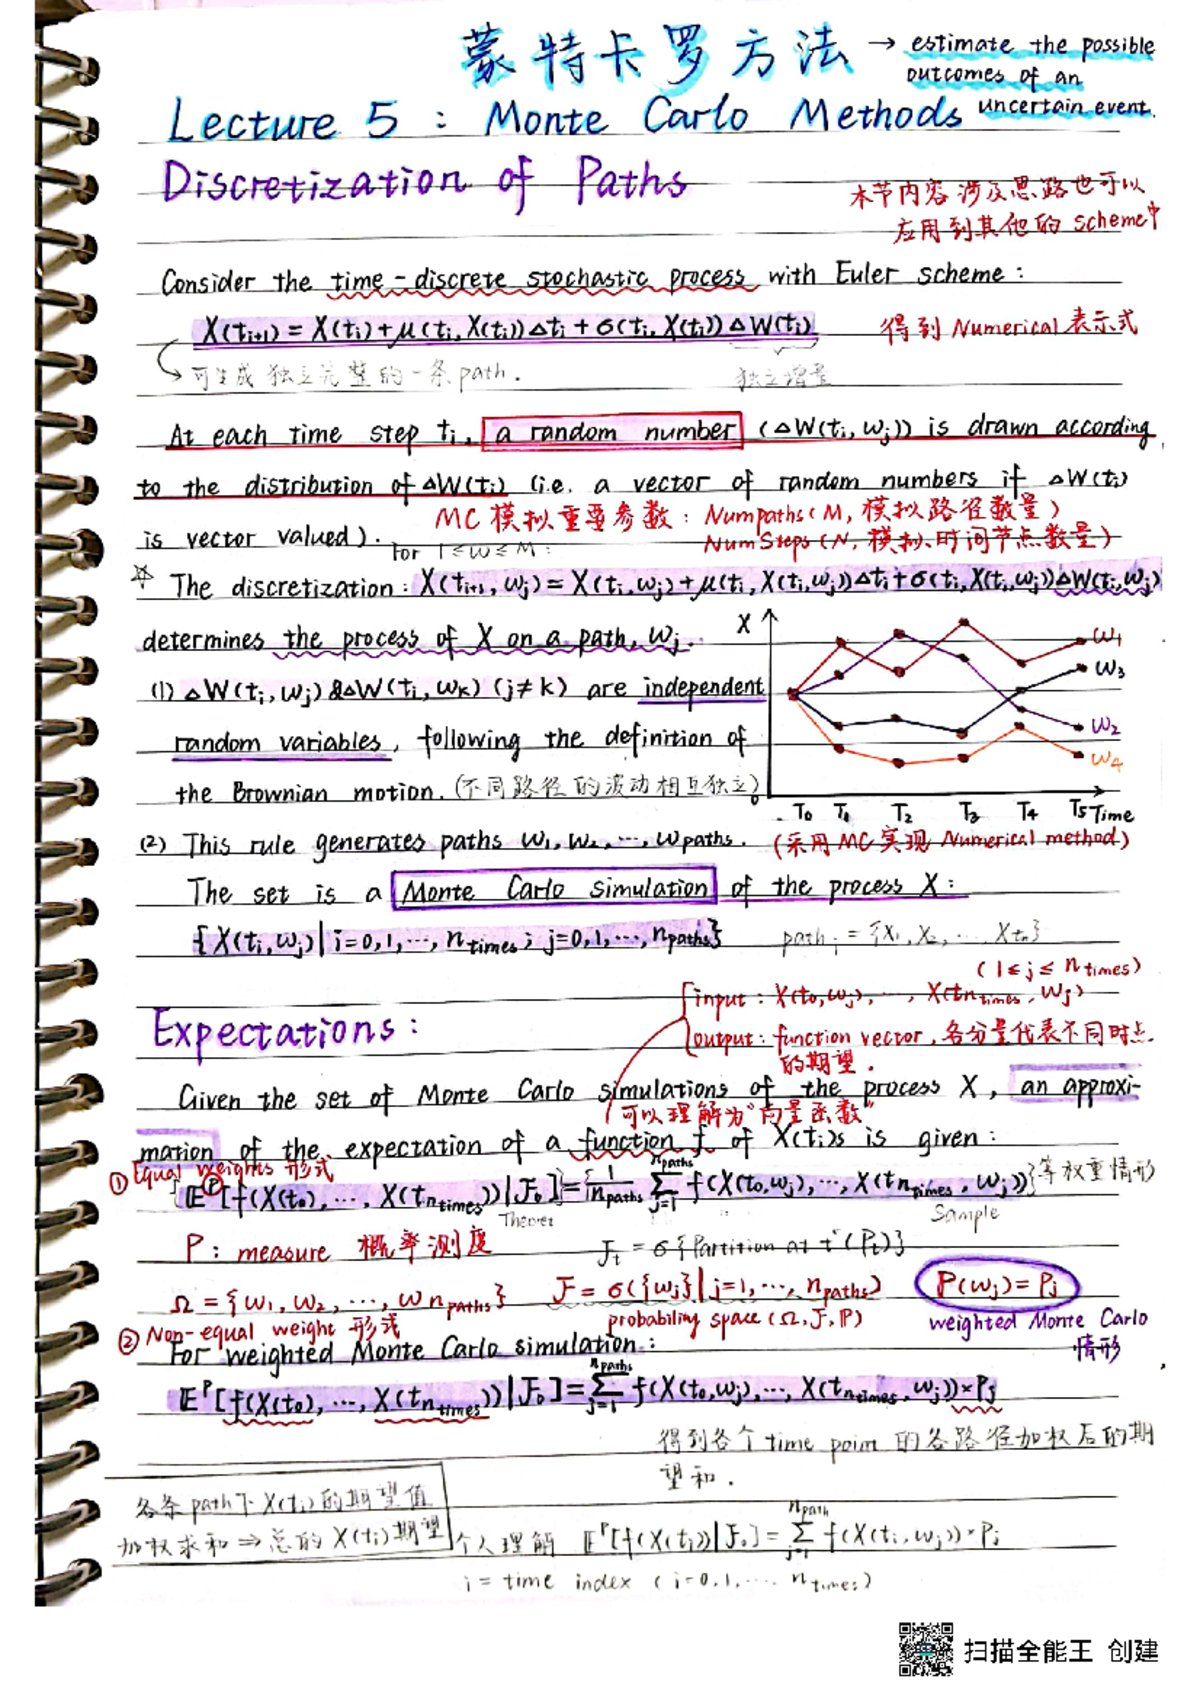 蒙特卡罗方法 → estimate the possible
outcomes of an
uncertain event.
Lecture 5 : Monte Carlo Methods
Discretization of Paths
本节内容涉及思路也可以
应用到其他的 scheme中
Consider the time-discrete stochastic process with Euler scheme :
X(ti+1) = X(ti) + μ(ti, X(ti))Δti + σ(ti, X(ti))ΔW(ti) 得到 Numerical 表示式
可生成独立完整的一条path. 独立增量
At each time step ti, a random number (ΔW(ti, wj)) is drawn according
to the distribution of ΔW(ti) (i.e. a vector of random numbers if ΔW(ti)
is vector valued). MC 模拟重要参数 : Numpaths (M, 模拟路径数量)
for 1≤w≤M : NumSteps (N, 模拟时间节点数量)
☆ The discretization : X(ti+1, wj) = X(ti, wj) + μ(ti, X(ti, wj))Δti + σ(ti, X(ti, wj))ΔW(ti, wj)
determines the process of X on a path wj.
(1) ΔW(ti, wj) & ΔW(ti, wk) (j≠k) are independent
random variables, following the definition of
the Brownian motion. (不同路径的波动相互独立)
X
w1
w3
w2
w4
0
T0 T1 T2 T3 T4 T5 Time
(2) This rule generates paths w1, w2, ..., wpaths. (采用MC实现 Numerical method)
The set is a Monte Carlo simulation of the process X :
{X(ti, wj) | i=0,1,..., ntimes ; j=0,1,..., npaths} pathj = {X1, X2, ..., Xtn}
(1≤j≤ntimes)
Expectations :
input : X(t0, wj), ..., X(tntimes, wj)
output : function vector, 各分量代表不同时点
的期望.
Given the set of Monte Carlo simulations of the process X, an approxi-
可以理解为"向量函数"
mation of the expectation of a function f of X(ti)s is given :
① Equal weights 形式
{E^P[f(X(t0), ..., X(tntimes)) | F0] = {1/npaths Σ_{j=1}^{npaths} f(X(t0, wj), ..., X(tntimes, wj))} 等权重情形
Theoret Sample
P : measure 概率测度 Ft = σ{Partition at t (Pt)}
Ω = {w1, w2, ..., wnpaths} F = σ({wj} | j=1, ..., npaths) P(wj) = Pj
probability space (Ω, F, P) weighted Monte Carlo
情形
② Non-equal weight 形式
For weighted Monte Carlo simulation :
E^P[f(X(t0), ..., X(tntimes)) | F0] = Σ_{j=1}^{npaths} f(X(t0, wj), ..., X(tntimes, wj))×Pj
得到各个 time point 的各路径加权后的期
望和.
各条path下X(ti)的期望值
加权求和⇒总的X(ti)期望
个人理解 E^P[f(X(ti)) | F0] = Σ_{j=1}^{npath} f(X(ti, wj))×Pj
i = time index (i=0,1,.... ntimes)
扫描全能王 创建